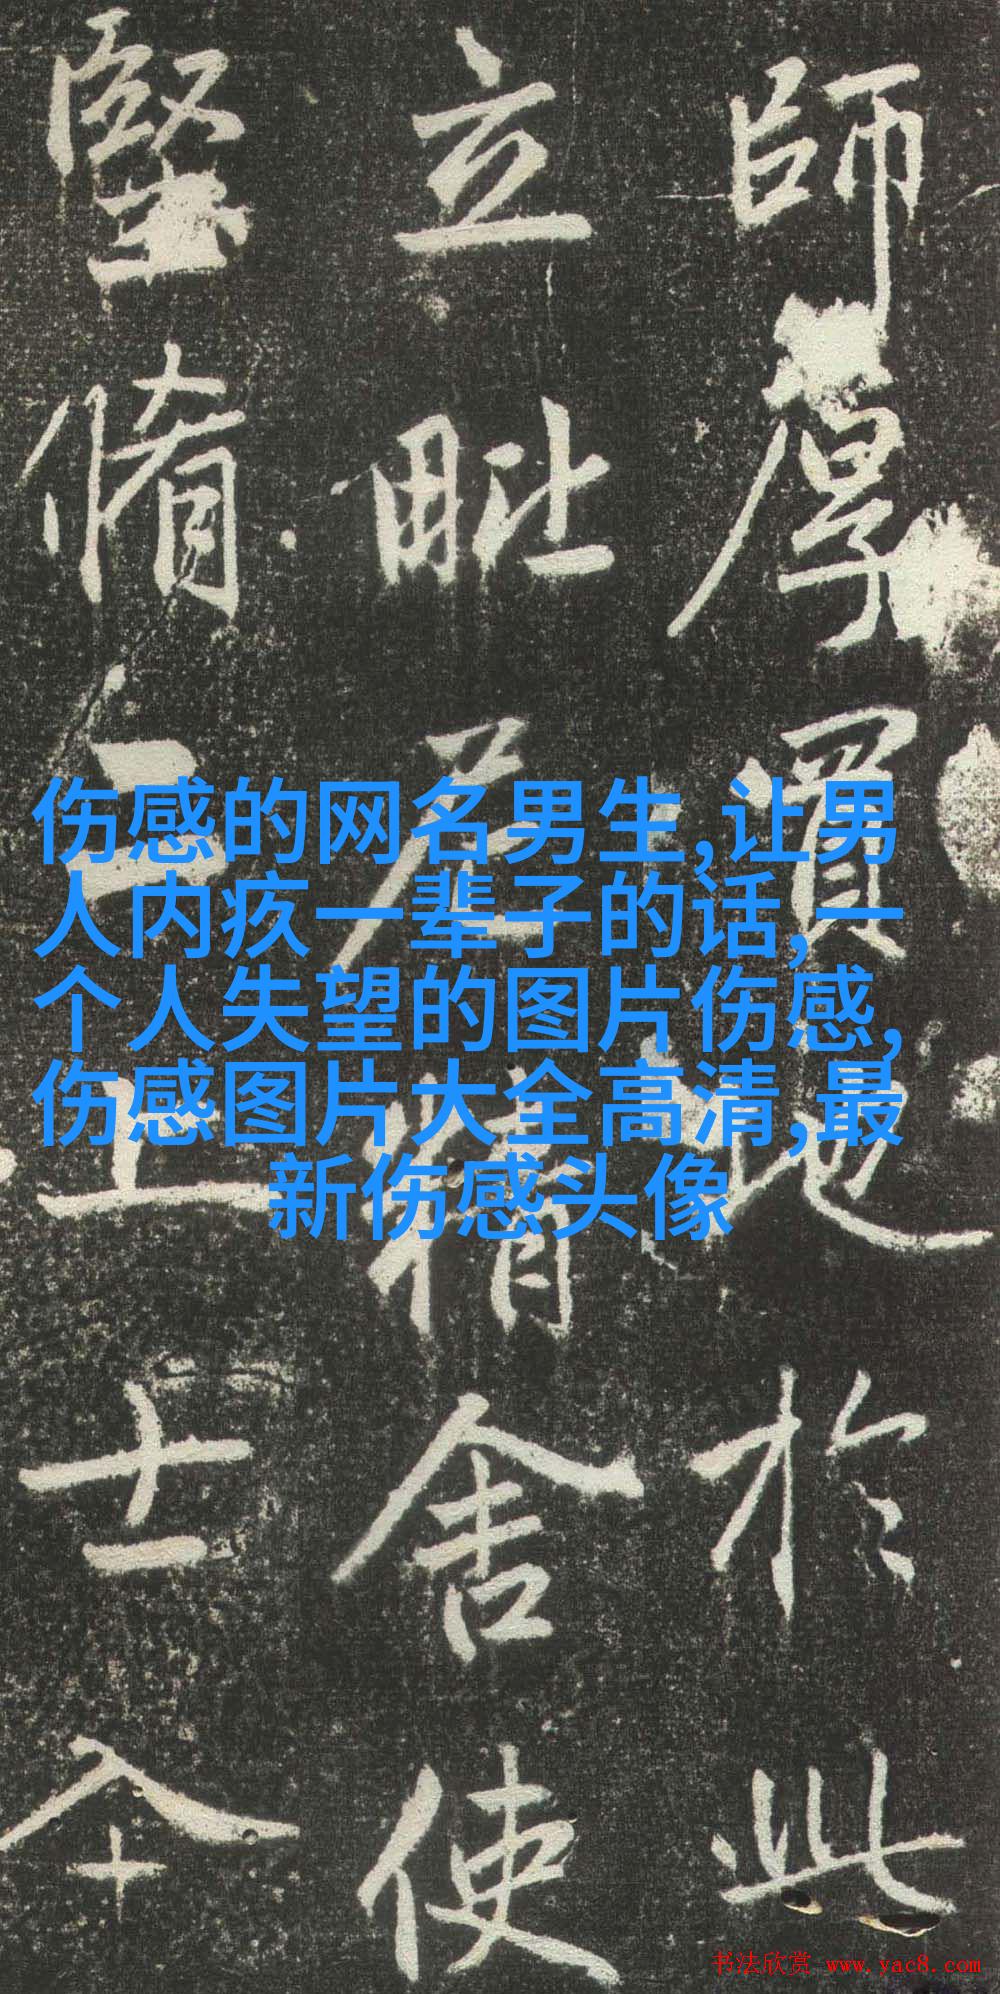 師厚買地於此
立毗尼精舍使
堅脩二上士
伤感的网名男生,让男
人内疚一辈子的话,一
个人失望的图片伤感,
伤感图片大全高清,最
新伤感头像
书法欣赏 www.yac8.com